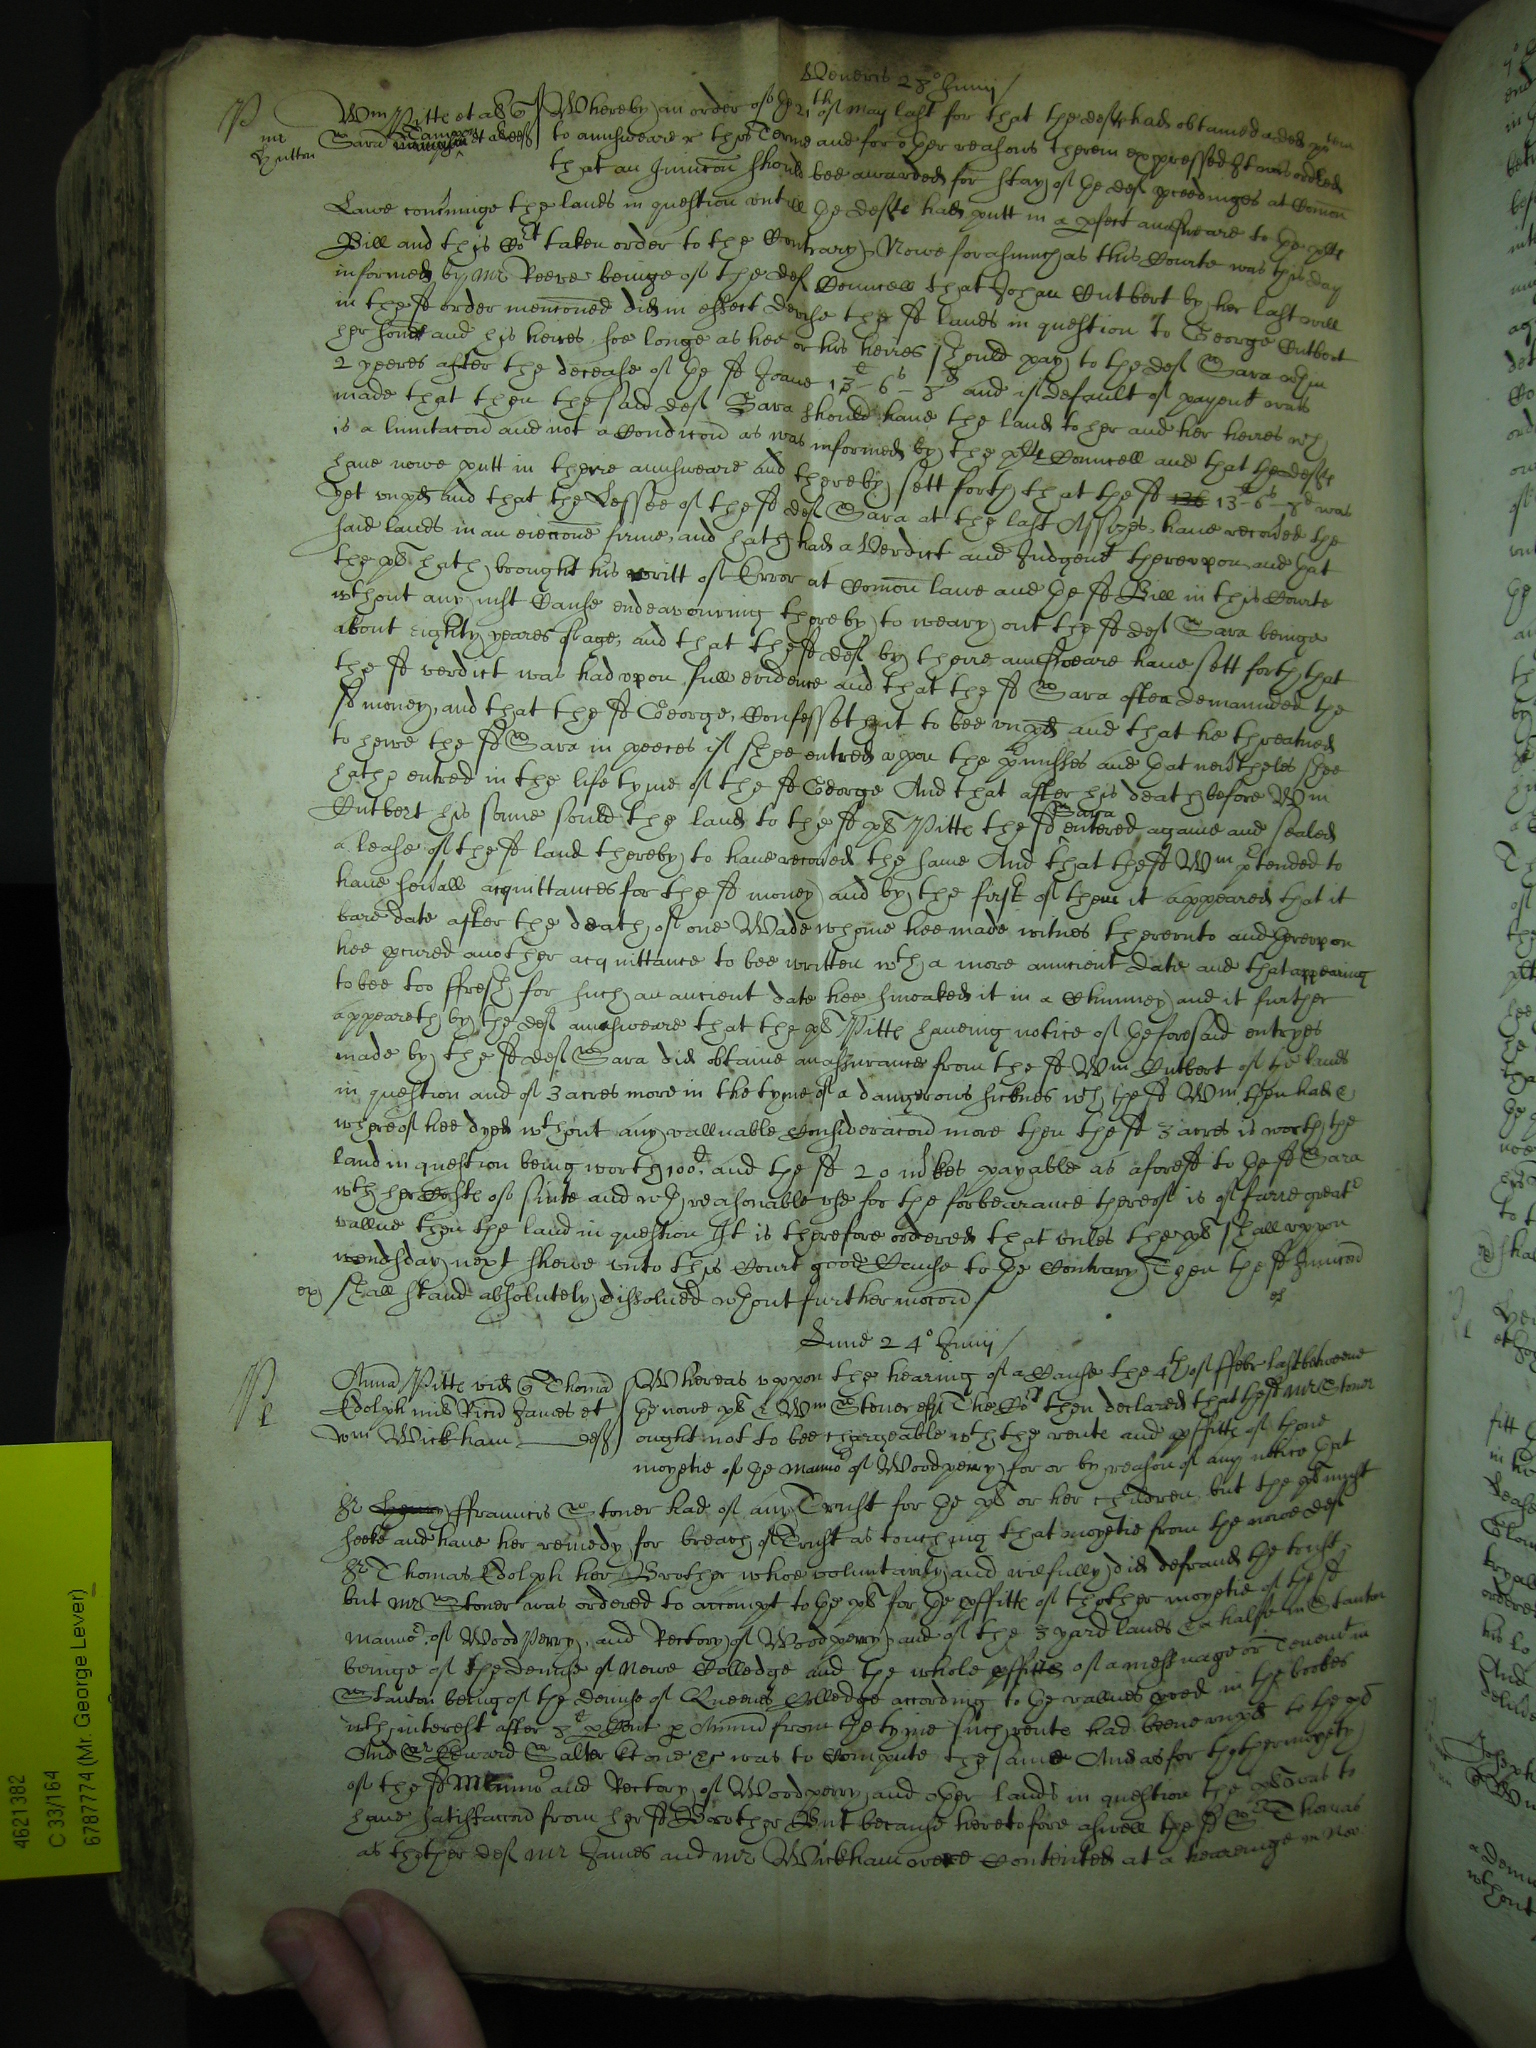 Veneris 28° Junij
P
mr
Hutton
Wm Pitte et al quer
Sara et al deft
Whereby an order of the 21th of May last for that the defte had obtained a ded
to aunsweare this Terme and for other reasons therein expressed It was ordred
that an Iniuncon should bee awarded for stay of the def pceedinges at Comon
Lawe concninge the lands in question untill the defte had putt in a pfect aunsweare to the plte
Bill and this Cort taken order to the Contrary, Nowe forasmuch as this Courte was this day
informed by Mr Reeve beinge of the def Councell that Johan Cutbert by her last will
in the sd order menconed did in effect devise the sd lands in question to George Cutbert
her sonne and his heires soe longe as hee or his heires should pay to the def Sara wthin
2 yeeres after the decease of the sd Joane 13l-6s-8d and if default of payent was
made that then the said def Sara should have the land to her and her heires wch
is a limitacon and not a Condicon as was informed by the plte Councell and that the defte
have nowe putt in theire aunsweare and thereby sett forth that the sd 13l-6s-8d was
yet unpd and that the Lessee of the sd def Sara at the last Assizes have recoved the
said lands in an eieccone firme, and hath had a Verdict and Judgent thereupon and that
the plt hath brought his writt of Error at Comon lawe and the sd Bill in this Courte
wthout any iust Cause endeavouring thereby to weary out the sd def Sara beinge
about eighty yeares of age, and that the sd def by theire aunsweare have sett forth that
the sd verdict was had upon full evidence and that the sd Sara after demaunded the
sd money, and that the sd George, Confesseth it to bee unpd and that he threatned
to hewe the sd Sara in peeces if shee entred upon the pmisses and that nevtheles shee
hath entred in the life tyme of the sd George And that after his death before Wm
Cutbert his sonne sould the land to the sd plt Pitte the sd Sara entered againe and sealed
a lease of the sd land thereby to have recoved the same And that the sd Wm ptended to
have sevall acquittances for the sd money and by the first of them it appeared that it
bare date after the death of one Wade whome hee made witnes thereunto and thereupon
hee pcured another acquittance to bee written wth a more auncient date and that appearing
to bee too ffresh for such an ancient date hee smoaked it in a Chimney and it further
appeareth by the def aunsweare that the plt Pitte haveing notice of the foresaid entryes
made by the sd def Sara did obtaine an assurance from the sd Wm Cutbert of the lands
in question and of 3 acres more in the tyme of a dangerous sicknes wch the sd Wm then had &
whereof hee dyed wthout any valluable Consideracon more then the sd 3 acres is worth the
land in question being worth 100l and the sd 20 mkes payable as aforesd to the sd Sara
wth her Coste of suite and wth reasonable use for the forbearance thereof is of farre greatr
vallue then the land in question It is therefore ordered that unles the plt shall uppon
wendsday next shewe unto this Court good Cause to the Contrary Then the sd Iniuncon
ex) shall stand absolutely dissolved wthout further mocon
Lune 24° Junij
P
Anna Pitte vid quer Thomas
Edolph mil Ricus James et
Wm Wickham deft
Whereas uppon the hearing of a Cause the 4th of ffebr last betweene
the nowe plt & Wm Stoner esqr The Cort then declared that the sd Mr Stoner
ought not to bee chargeable wth the rente and pffitte of thone
moyetie of the Mannor of Woodperry for or by reason of any notice that
Sr Henry ffrauncis Stoner had of any Trust for the plt or her children but the plt might
seeke and have her remedy for breach of Trust as touching that moyetie from the nowe def
Sr Thomas Edolph her Brother whoe voluntarily and wilfully did defraud the trust
but Mr Stoner was ordered to accompt to the plt for the pffitte of thother moyetie of the sd
Mannor of Wood Perry, and Rectory of Woodperry and of the 3 yard lands & a halfe in Stanton
beinge of the demise of Newe Colledge and the whole pffitte of a messuage or Tenement in
Stanton being of the demise of Queenes Colledge according to the vallues pved in the bookes
wth interest after 8l p Cent p Annum from the tyme such rente had beene unpd to the plt
And Sr Edward Salter kt one &c was to compute the same And as for thother moyety
of the sd Mannor and Rectory of Woodperry and other lands in question the plt was to
have satisfaccon from her sd Brother But because heretofore aswell the sd Sr Thomas
as thother def Mr James and Mr Wickham were Contented at a heareinge in Nov
4621382
C 33/164
6787774 (Mr. George Lever)